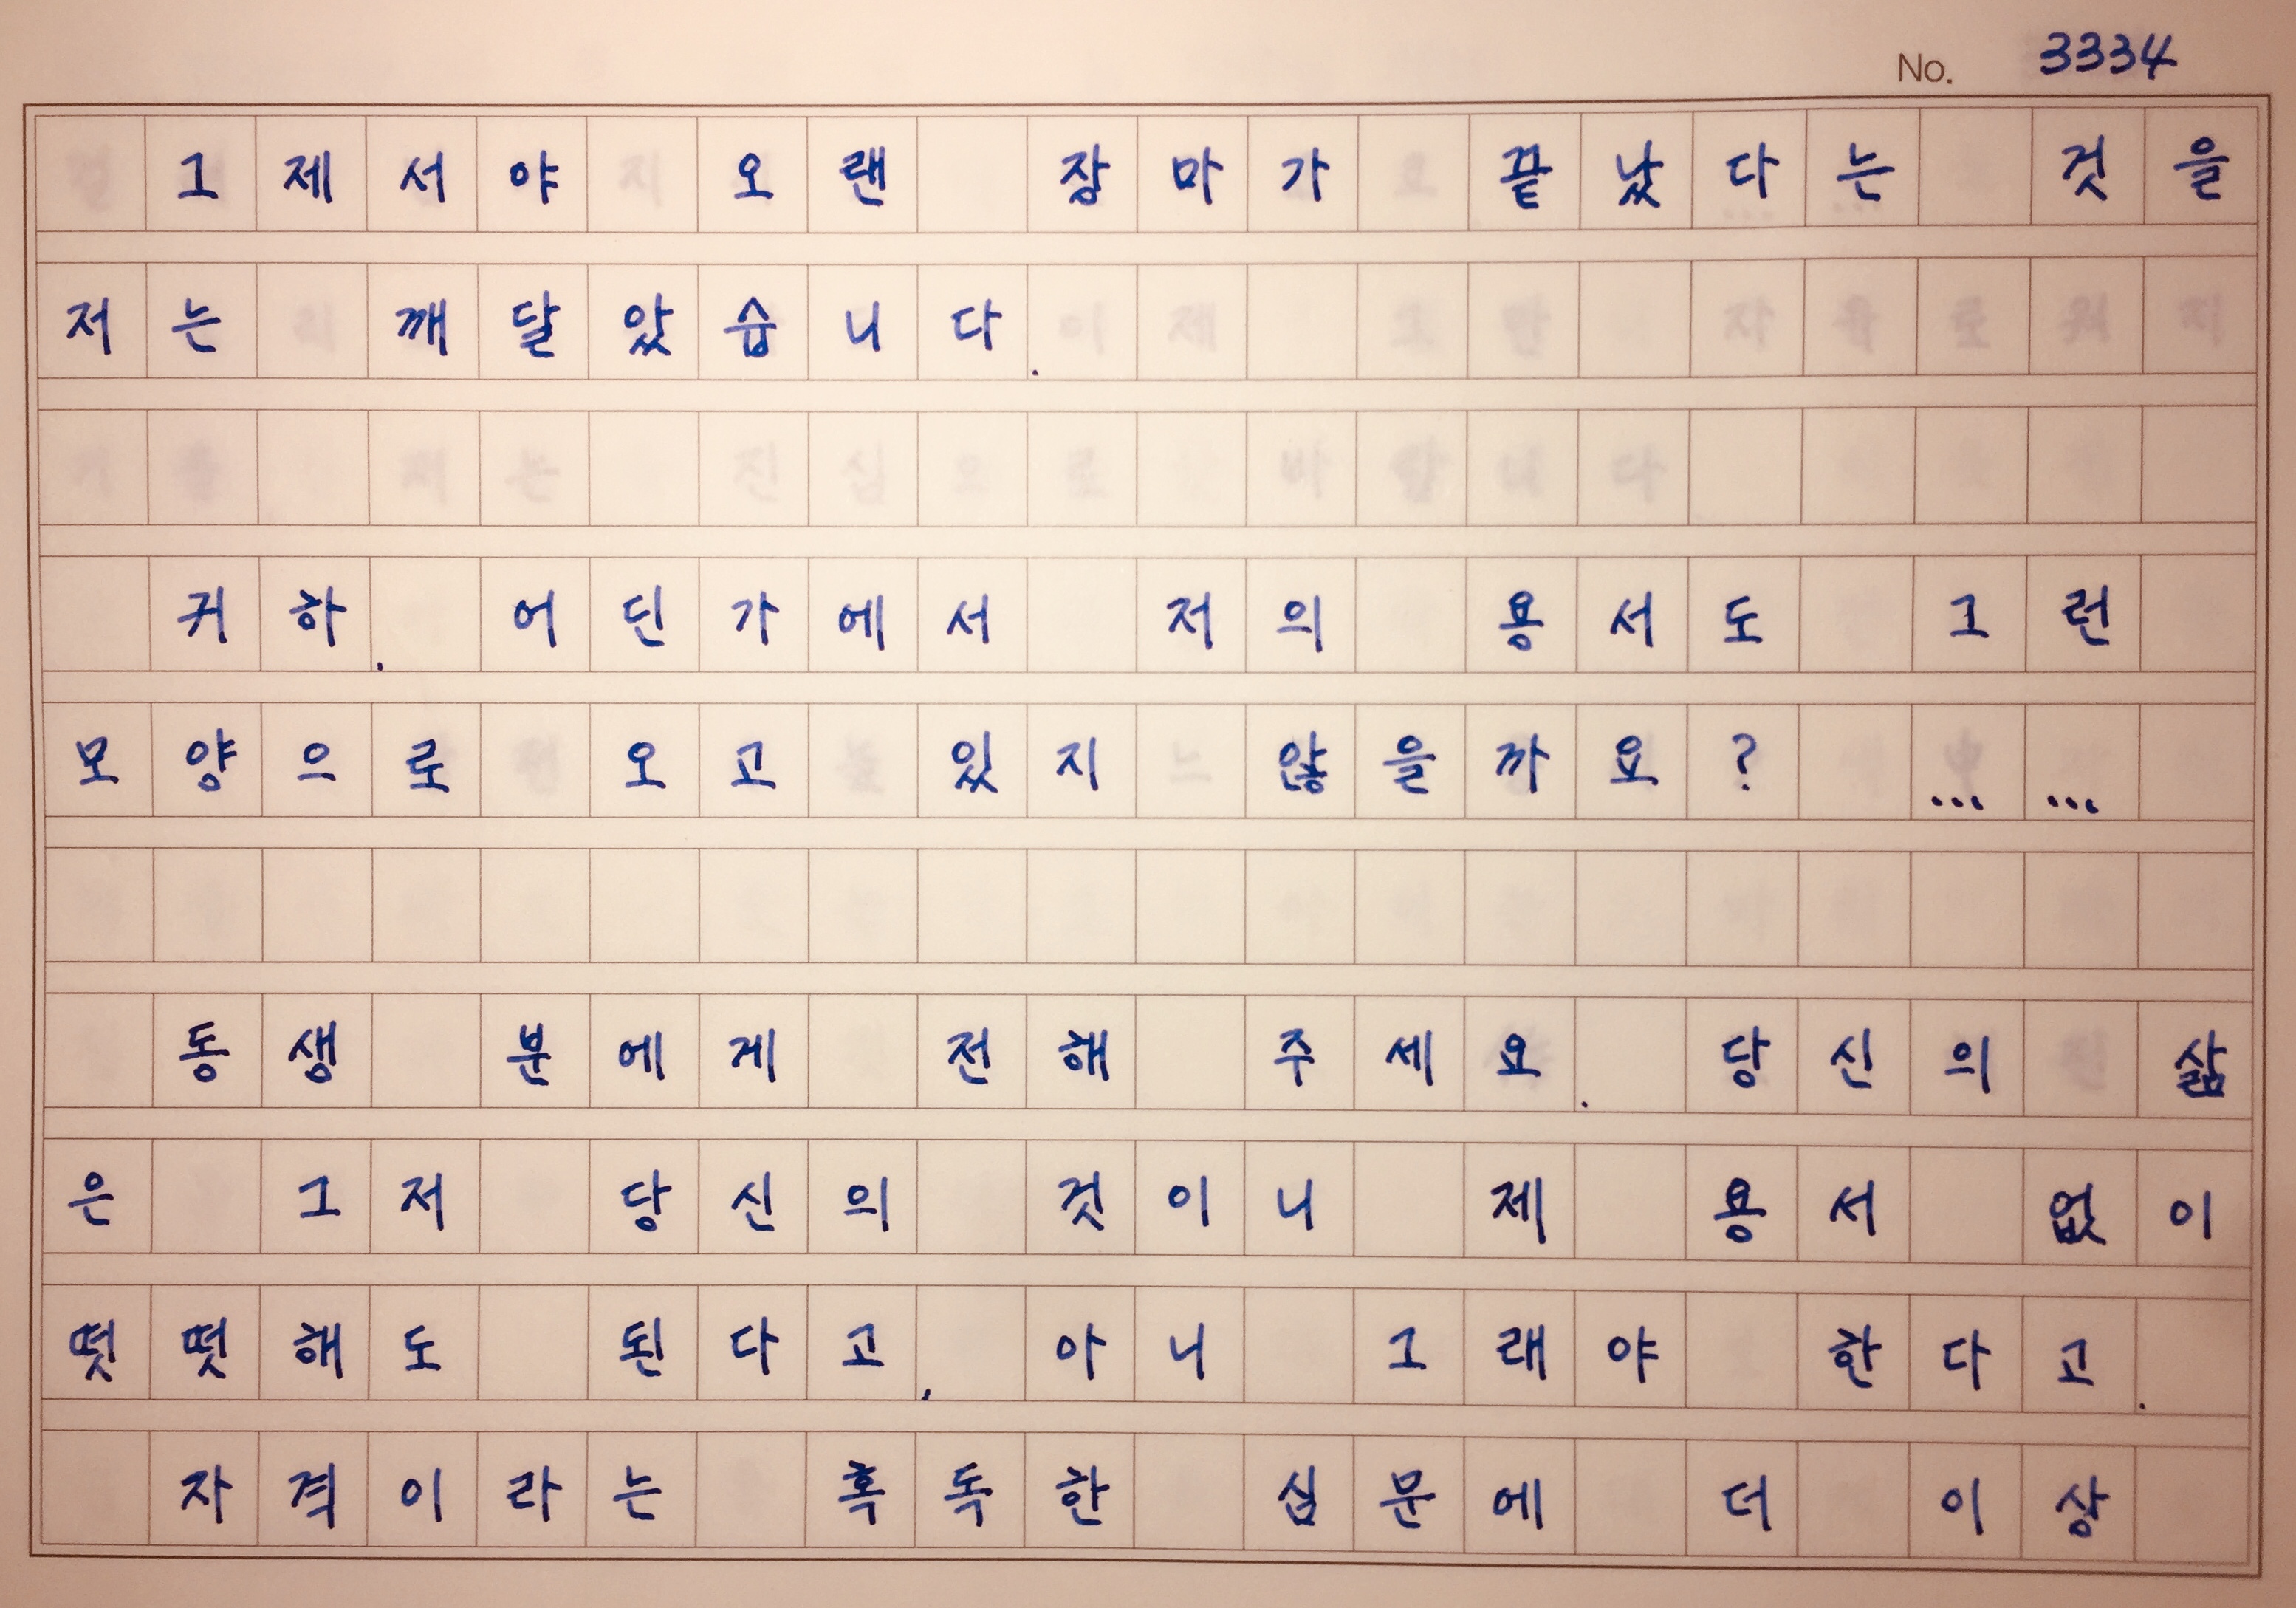 No. 3334
그제서야 오랜 장마가 끝났다는 것을
저는 깨달았습니다.
귀하. 어딘가에서 저의 용서도 그런
모양으로 오고 있지 않을까요? ……
동생 분에게 전해 주세요. 당신의 삶
은 그저 당신의 것이니 제 용서 없이
떳떳해도 된다고, 아니 그래야 한다고.
자격이라는 혹독한 심문에 더 이상